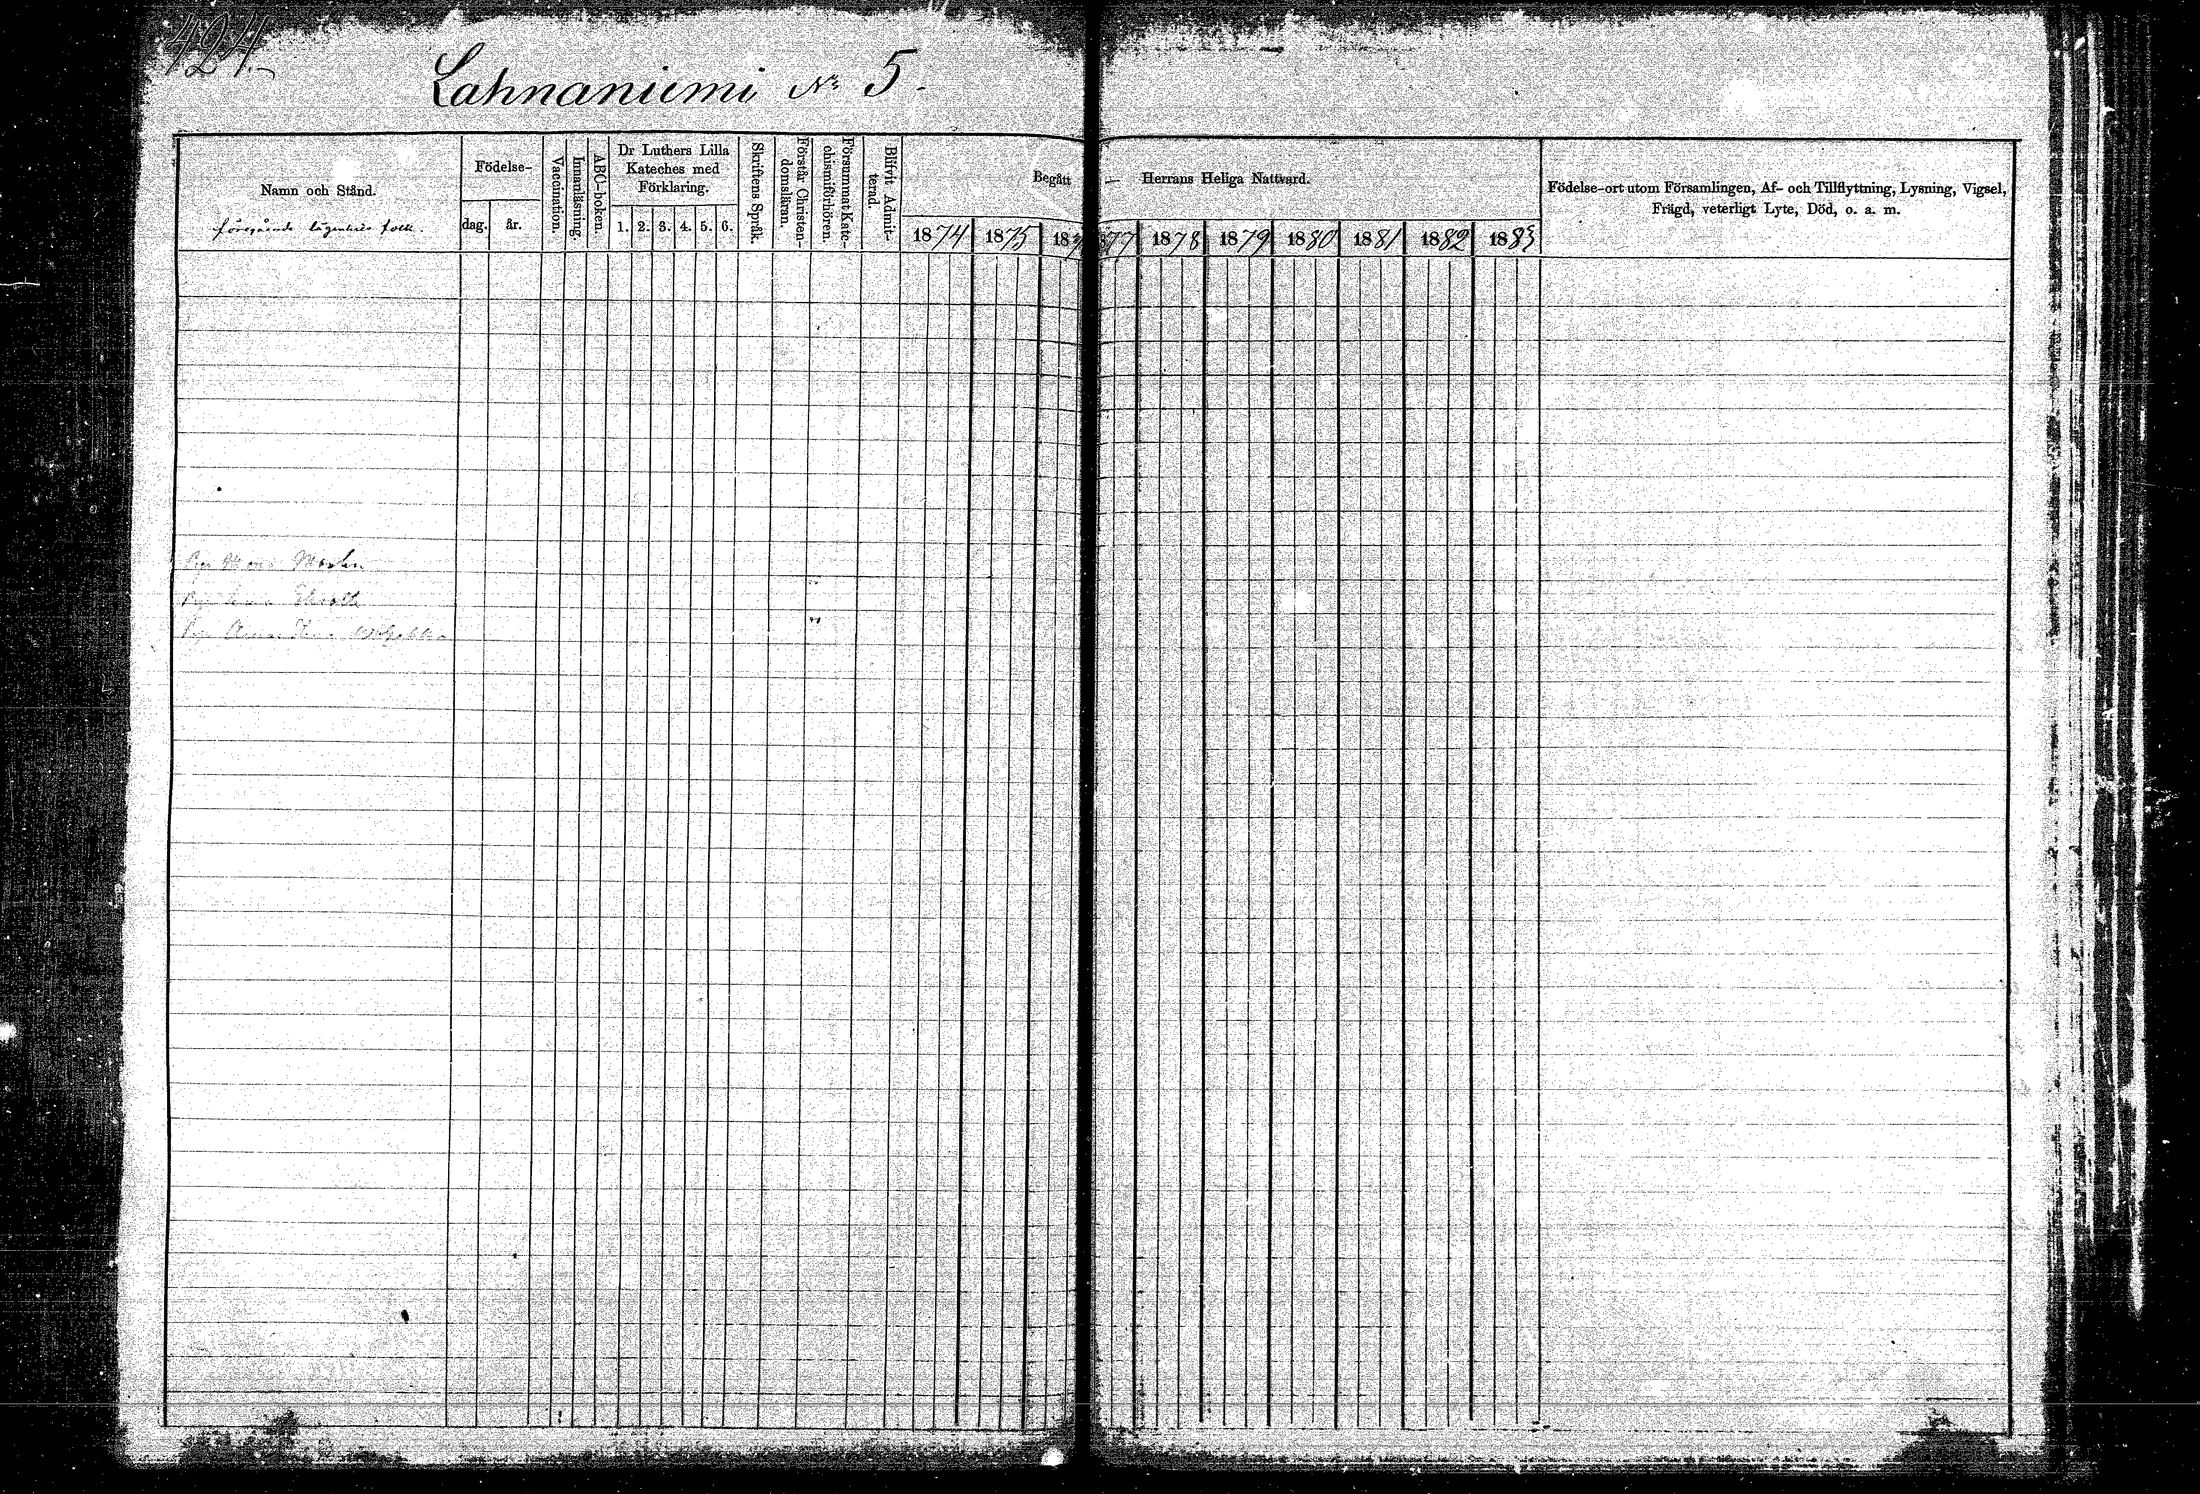 424.
Lahnaniemi No 5.
Namn och Stånd.
föregående lägenhets folk.
Födelse-
dag. år.
Vaccination.
Innanläsning.
ABC-boken.
Dr Luthers Lilla
Kateches med
Förklaring.
1. 2. 3. 4. 5. 6.
Skriftens Språk.
Förstår Christen-
domsläran.
Försummat Kate-
chismiförhören.
Blifvit Admit-
terad.
Begått Herrans Heliga Nattvard.
1874 1875 187 77 1878 1879 1880 1881 1882 1883
Födelse-ort utom Församlingen, Af- och Tillflyttning, Lysning, Vigsel,
Frägd, veterligt Lyte, Död, o. a. m.
Pig
Pig
Pig Anna